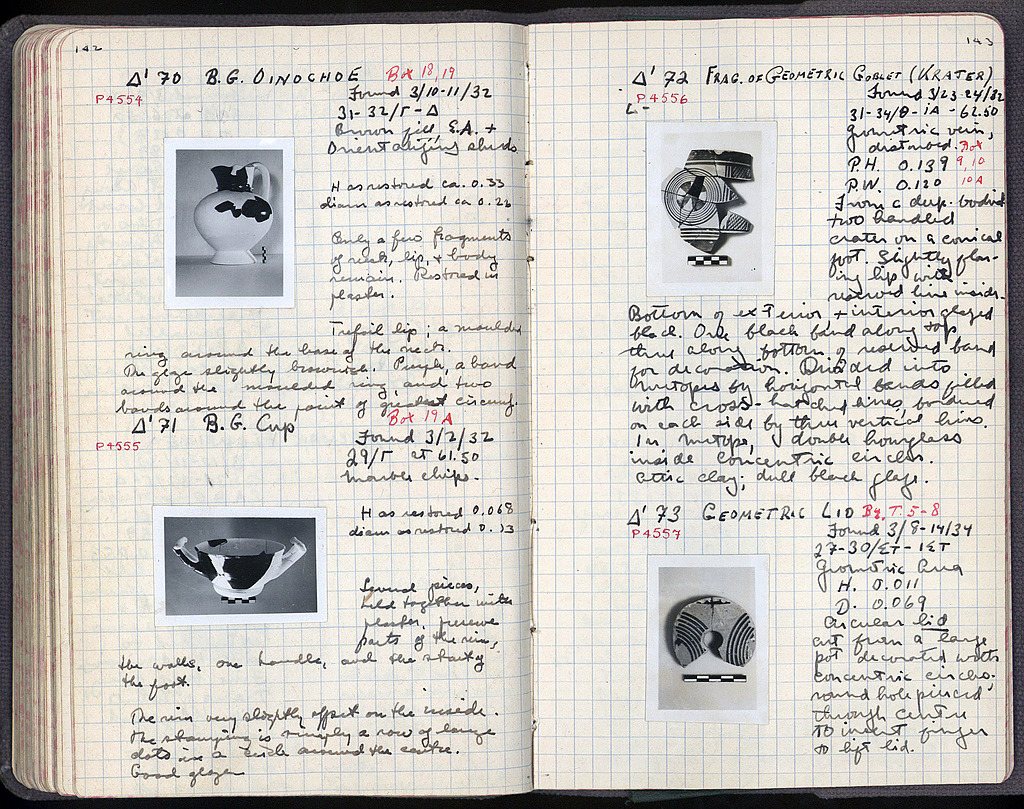 142
Δ' 70 B.G. OINOCHOE Box 18, 19
P4554
Found 3/10-11/32
31-32/Γ-Δ
Brown fill, E.A. +
Orientalizing sherds.
H as restored ca. 0.33
diam as restored ca 0.23
Only a few fragments
of neck, lip, + body
remain. Restored in
plaster.
Trefoil lip; a moulded
ring around the base of the neck.
The glaze slightly brownish. Purple, a band
around the moulded ring and two
bands around the point of greatest circumf.
Δ' 71 B.G. Cup Box 19A
P4555
Found 3/2/32
29/Γ at 61.50
marble chips.
H as restored 0.068
diam as restored 0.13
Several pieces,
held together with
plaster, preserve
parts of the rim,
the walls, one handle, and the start of
the foot.
The rim very slightly offset on the inside.
The stamping is simply a row of large
dots in a circle around the centre.
Good glaze
143
Δ' 72 FRAG. OF GEOMETRIC GOBLET (KRATER)
P4556
Found 3/23-24/32
31-34/Θ-ΙΑ -62.50
Geometric vein,
disturbed. Box
P.H. 0.139 9, 10
P.W. 0.120 10A
From a deep-bodied
two handled
crater on a conical
foot. Slightly flar-
ing lip with
reserved line inside.
Bottom of exterior + interior glazed
black. One black band along top
three along bottom of reserved band
for decoration. Divided into
metopes by horizontal bands filled
with cross-hatched lines, bordered
on each side by three vertical lines.
In metope, double hourglass
inside concentric circles.
Attic clay; dull black glaze.
Δ' 73 GEOMETRIC LID Bg. T. 5-8
P4557
Found 3/8-14/34
27-30/ΣΤ-ΙΣΤ
Geometric Area
H. 0.011
D. 0.069
Circular lid
cut from a large
pot decorated with
concentric circles.
round hole pierced
through centre
to insert finger
to lift lid.